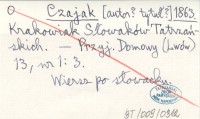 Czajak [autor? tytuł?] 1863.
Krakowiak Słowaków Tatrzań-
skich. — Przyj. Domowy (Lwów)
13, nr 1: 3.
Wiersz po słowacku.
BT/009/